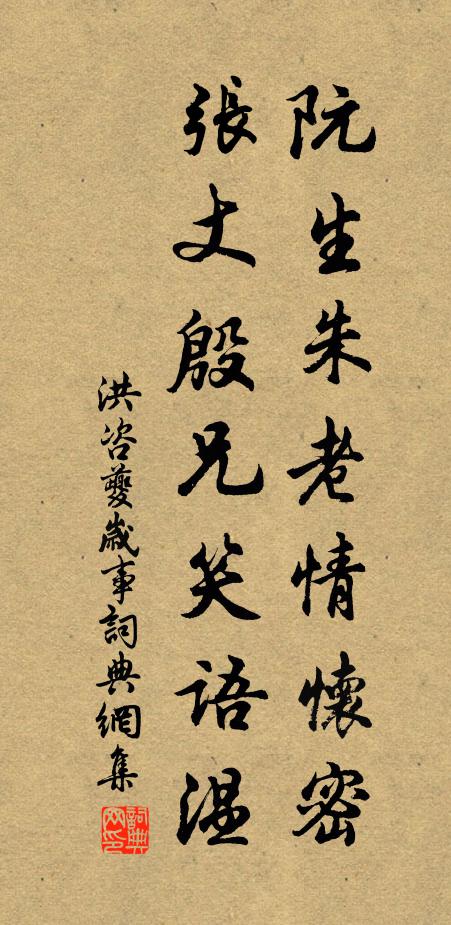 阮生朱老情懷密
張丈殷兄笑語温
洪咨夔歲事詞典網集
詞典网印